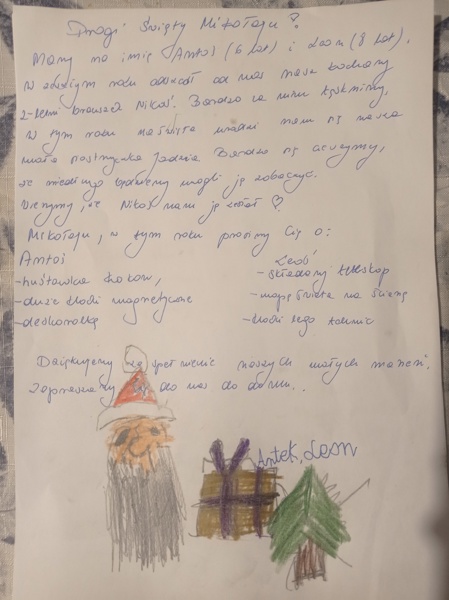 Drogi Święty Mikołaju!
Mamy na imię Antoś (6 lat) i Leon (8 lat).
W zeszłym roku odszedł od nas nasz kochany
2-letni braciszek Nikoś. Bardzo za nim tęsknimy.
W tym roku na święta urodzi nam się nasza
mała siostrzyczka Jadzia Bardzo się cieszymy,
że niedługo będziemy mogli ją zobaczyć.
Wierzymy, że Nikoś nam ją zesłał ♡
Mikołaju, w tym roku prosimy Cię o:
Antoś
-huśtawka
-duże klocki magnetyczne
-deskorolkę
Leoś
-składany teleskop
-mapę świata na ścianę
-klocki lego technic
Dziękujemy za spełnienie naszych małych marzeń.
Zapraszamy Cię do nas do domu.
Antek, Leon